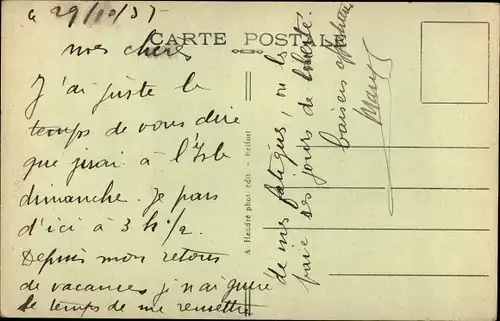 le 29/10/37
CARTE POSTALE
mes chères
J'ai juste le
temps de vous dire
que j'irai à l'Isle
dimanche. Je pars
d'ici à 3 h 1/2
Depuis mon retour
de vacances je n'ai guère
le temps de me remettre
de mes fatigues, vu les
ses jours de liberté.
baisers affectueux
A Hendré phot. edit. - Belfort